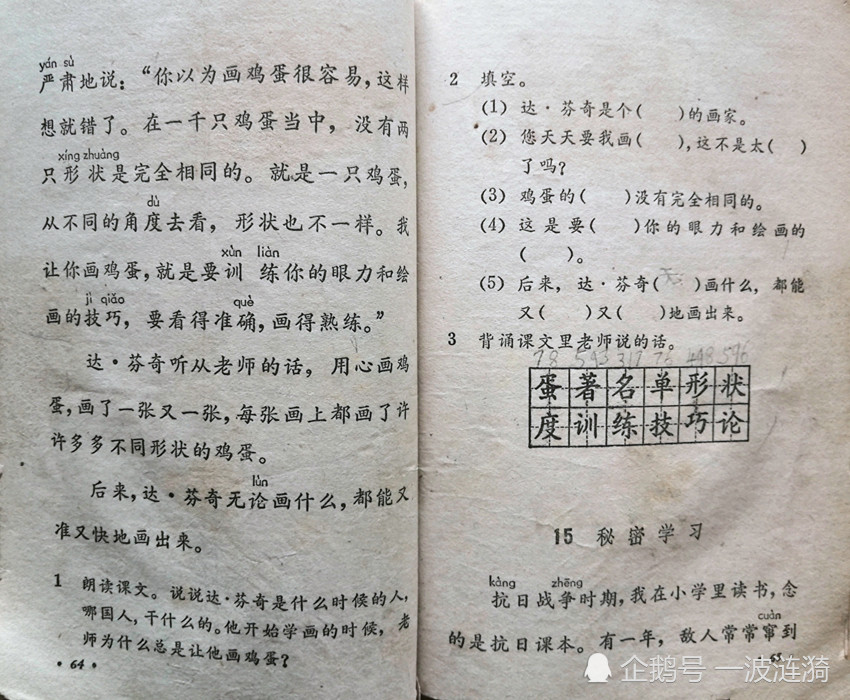 yán sù
严肃地说：“你以为画鸡蛋很容易，这样
想就错了。在一千只鸡蛋当中，没有两
xíng zhuàng
只形状是完全相同的。就是一只鸡蛋，
dù
从不同的角度去看，形状也不一样。我
xùn liàn
让你画鸡蛋，就是要训练你的眼力和绘
jì qiǎo què
画的技巧，要看得准确，画得熟练。”
达·芬奇听从老师的话，用心画鸡
蛋，画了一张又一张，每张画上都画了许
许多多不同形状的鸡蛋。
lùn
后来，达·芬奇无论画什么，都能又
准又快地画出来。
1 朗读课文。说说达·芬奇是什么时候的人，
哪国人，干什么的。他开始学画的时候，老
师为什么总是让他画鸡蛋？
·64·
2 填空。
(1) 达·芬奇是个( )的画家。
(2) 您天天要我画( )，这不是太( )
了吗？
(3) 鸡蛋的( )没有完全相同的。
(4) 这是要( )你的眼力和绘画的
( )。
(5) 后来，达·芬奇(无 )画什么，都能
又( )又( )地画出来。
3 背诵课文里老师说的话。
蛋著名单形状
度训练技巧论
15 秘密学习
kàng zhēng
抗日战争时期，我在小学里读书，念
cuàn
的是抗日课本。有一年，敌人常常窜到
企鹅号 一波涟漪